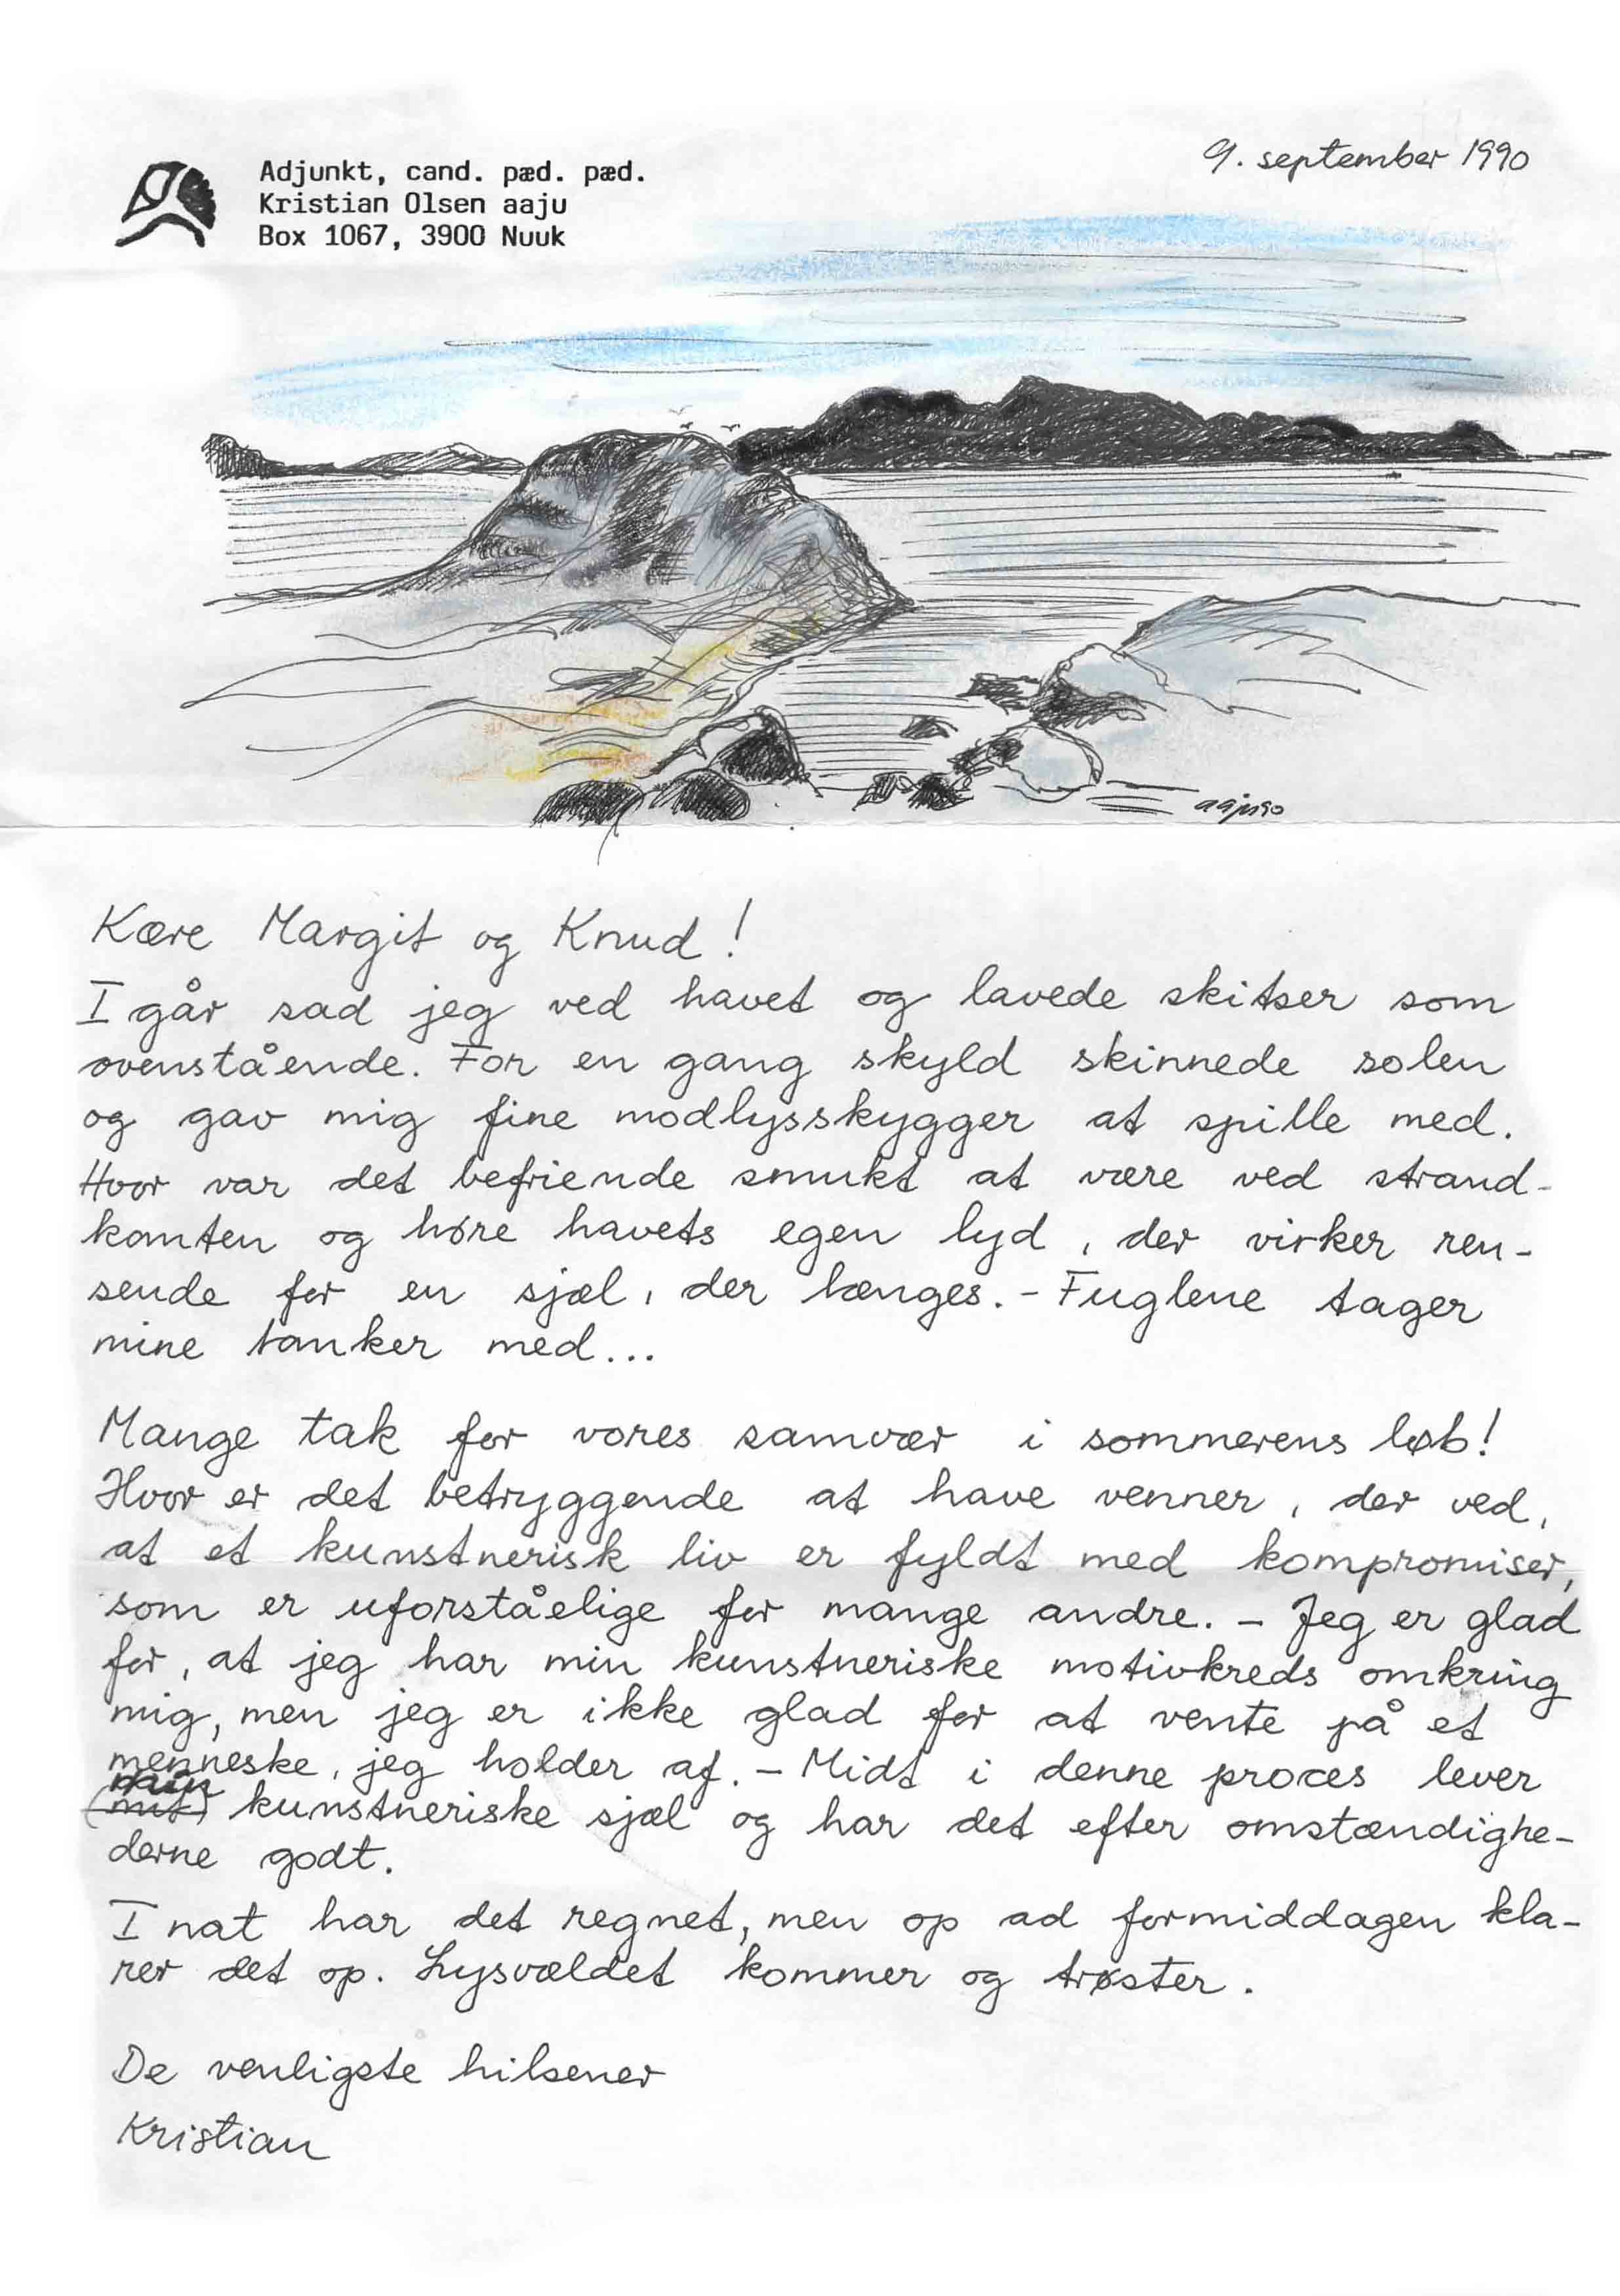 Adjunkt, cand. pæd. pæd.
Kristian Olsen aaju
Box 1067, 3900 Nuuk
9. september 1990
aaju90
Kære Margit og Knud!
I går sad jeg ved havet og lavede skitser som
ovenstående. For en gang skyld skinnede solen
og gav mig fine modlysskygger at spille med.
Hvor var det befriende smukt at være ved strand-
kanten og høre havets egen lyd, der virker ren-
sende for en sjæl, der længes. - Fuglene tager
mine tanker med...
Mange tak for vores samvær i sommerens løb!
Hvor er det betryggende at have venner, der ved,
at et kunstnerisk liv er fyldt med kompromiser,
som er uforståelige for mange andre. - Jeg er glad
for, at jeg har min kunstneriske motivkreds omkring
mig, men jeg er ikke glad for at vente på et
menneske, jeg holder af. - Midt i denne proces lever
min
(mit) kunstneriske sjæl og har det efter omstændighe-
derne godt.
I nat har det regnet, men op ad formiddagen kla-
rer det op. Lysvældet kommer og trøster.
De venligste hilsener
Kristian